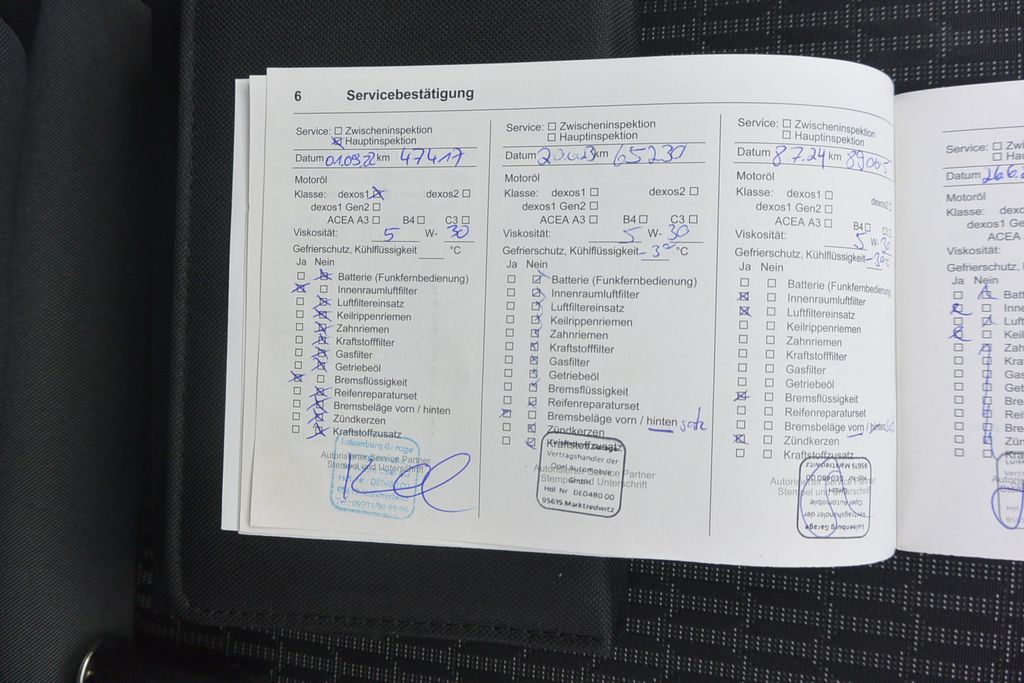 6 Servicebestätigung
Service: ☐ Zwischeninspektion
☒ Hauptinspektion
Datum 01.09.22 km 47417
Motoröl
Klasse: dexos1 ☒ dexos2 ☐
dexos1 Gen2 ☐
ACEA A3 ☐ B4 ☐ C3 ☐
Viskosität: 5 W- 30
Gefrierschutz, Kühlflüssigkeit ____ °C
Ja Nein
☐ ☒ Batterie (Funkfernbedienung)
☒ ☐ Innenraumluftfilter
☐ ☒ Luftfiltereinsatz
☐ ☒ Keilrippenriemen
☐ ☒ Zahnriemen
☐ ☒ Kraftstofffilter
☐ ☒ Gasfilter
☐ ☒ Getriebeöl
☒ ☐ Bremsflüssigkeit
☐ ☒ Reifenreparaturset
☐ ☒ Bremsbeläge vorn / hinten
☐ ☒ Zündkerzen
☐ ☒ Kraftstoffzusatz
Luisenburg Garage
Autorisierter Service Partner
Stempel und Unterschrift
Service: ☐ Zwischeninspektion
☐ Hauptinspektion
Datum km 65230
Motoröl
Klasse: dexos1 ☐ dexos2 ☐
dexos1 Gen2 ☐
ACEA A3 ☐ B4 ☐ C3 ☐
Viskosität: 5 W- 30
Gefrierschutz, Kühlflüssigkeit °C
Ja Nein
☐ ☒ Batterie (Funkfernbedienung)
☐ ☒ Innenraumluftfilter
☐ ☒ Luftfiltereinsatz
☐ ☒ Keilrippenriemen
☐ ☒ Zahnriemen
☐ ☒ Kraftstofffilter
☐ ☒ Gasfilter
☐ ☒ Getriebeöl
☐ ☒ Bremsflüssigkeit
☐ ☒ Reifenreparaturset
☒ ☐ Bremsbeläge vorn / hinten
☐ ☒ Zündkerzen
☐ ☒ Kraftstoffzusatz
Vertragshändler der
Opel Automobile
GmbH
Hdl Nr DE0480 00
95615 Marktredwitz
Autorisierter Service Partner
Stempel und Unterschrift
Service: ☐ Zwischeninspektion
☐ Hauptinspektion
Datum 8.7.24 km 89005
Motoröl
Klasse: dexos1 ☐ dexos2
dexos1 Gen2 ☐
ACEA A3 ☐ B4 ☐
Viskosität: 5 W- 30
Gefrierschutz, Kühlflüssigkeit
Ja Nein
☐ ☐ Batterie (Funkfernbedienung
☒ ☐ Innenraumluftfilter
☒ ☐ Luftfiltereinsatz
☐ ☐ Keilrippenriemen
☐ ☐ Zahnriemen
☐ ☐ Kraftstofffilter
☐ ☐ Gasfilter
☐ ☐ Getriebeöl
☒ ☐ Bremsflüssigkeit
☐ ☐ Reifenreparaturset
☐ ☐ Bremsbeläge vorn / hinten
☒ ☐ Zündkerzen
☐ ☐ Kraftstoffzusatz
Luisenburg Garage
Vertragshändler der
Opel Automobile
GmbH
Hdl Nr. DE0480 00
95615 Marktredwitz
Service: ☐ Zwi
☐ Hau
Datum 26.6.
Motoröl
Klasse: dexo
dexos1 G
ACEA
Viskosität:
Gefrierschutz,
Ja Nein
Batt
Inne
Luft
Keil
Zah
Kra
Gas
Get
Bre
Reif
Bre
Zün
Kra